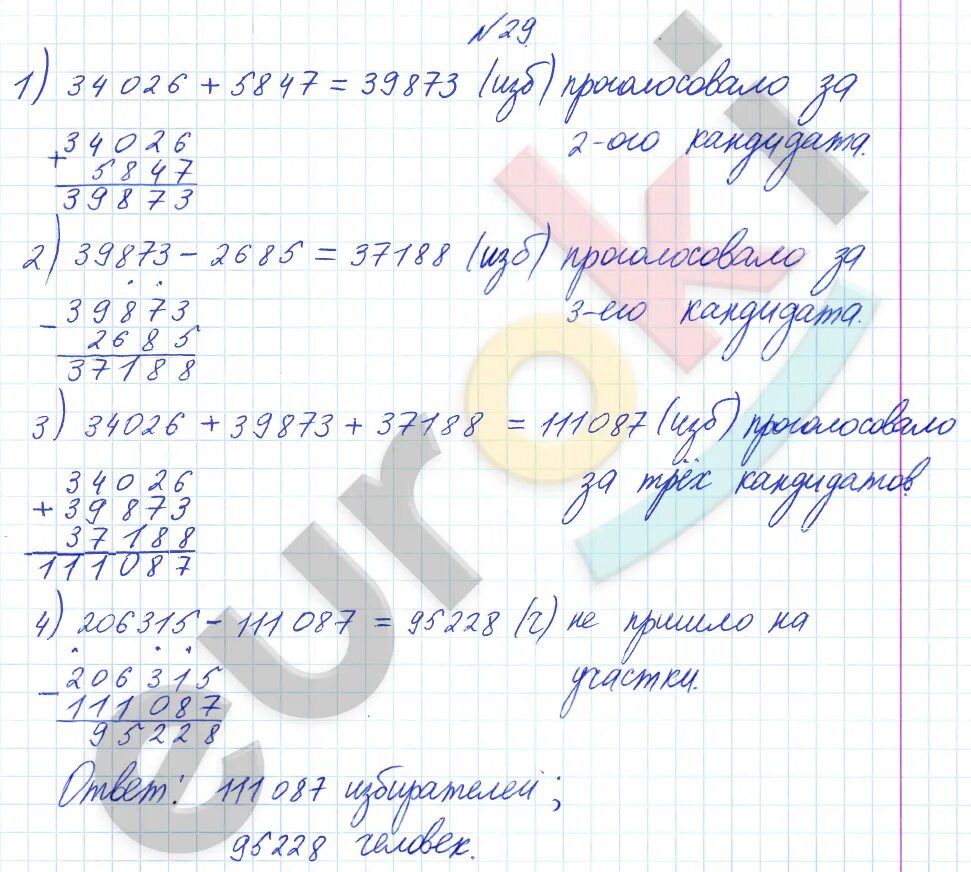 №29.
1) 34026 + 5847 = 39873 (изб) проголосовало за
2-ого кандидата.
34026
+ 5847
39873
2) 39873 - 2685 = 37188 (изб) проголосовало за
3-его кандидата.
- 39873
2685
37188
3) 34026 + 39873 + 37188 = 111087 (изб) проголосовало
за трёх кандидатов.
34026
+ 39873
37188
111087
4) 206315 - 111087 = 95228 (ч) не пришло на
участки.
- 206315
111087
95228
Ответ: 111087 избирателей;
95228 человек.
euroki